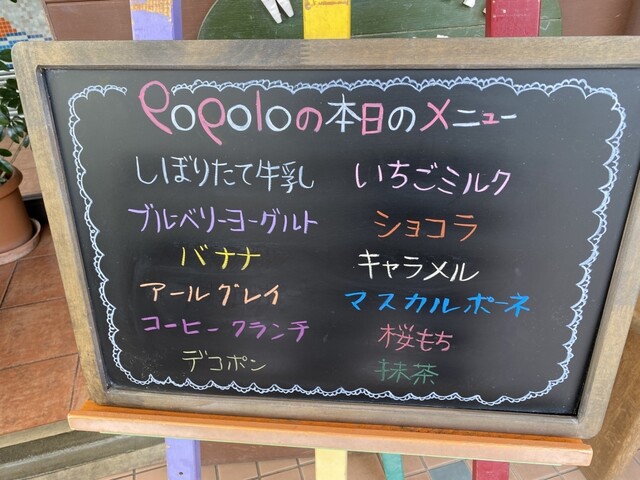 Popoloの本日のメニュー
しぼりたて牛乳
ブルベリーヨーグルト
バナナ
アールグレイ
コーヒークランチ
デコポン
いちごミルク
ショコラ
キャラメル
マスカルポーネ
桜もち
抹茶